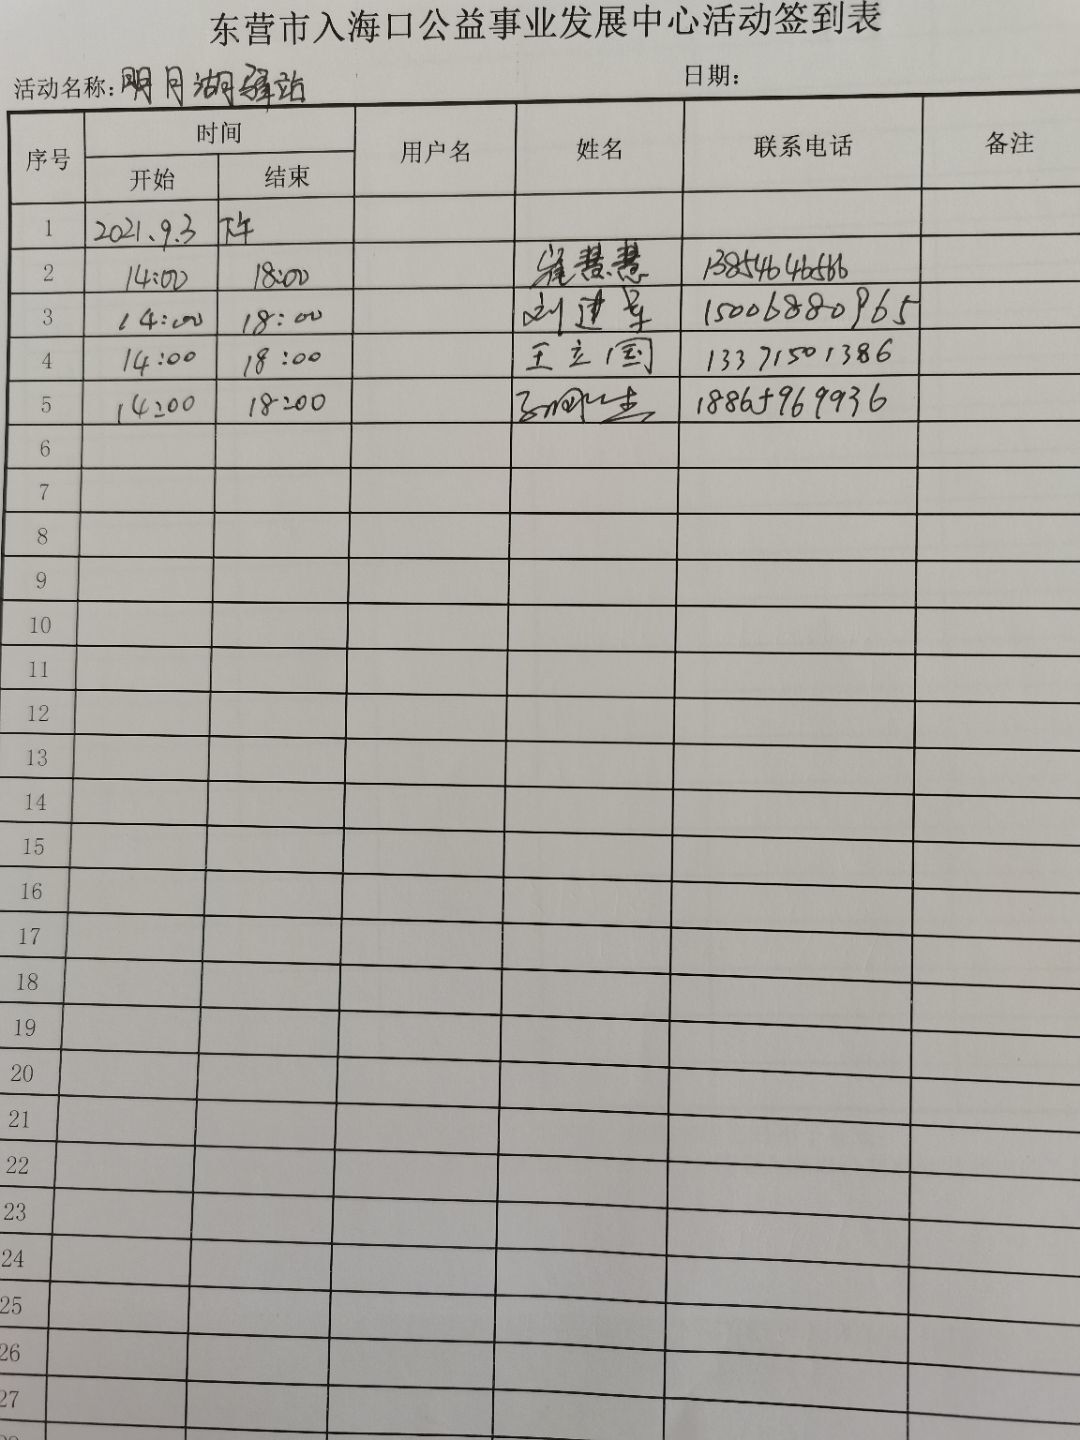 东营市入海口公益事业发展中心活动签到表
活动名称：明月湖驿站 日期：
序号 时间 用户名 姓名 联系电话 备注
开始 结束
1 2021.9.3 下午
2 14:00 18:00 慧慧 13854646566
3 14:00 18:00 刘建军 15006880965
4 14:00 18:00 王立国 13371501386
5 14:00 18:00 18865969936
6
7
8
9
10
11
12
13
14
15
16
17
18
19
20
21
22
23
24
25
26
27